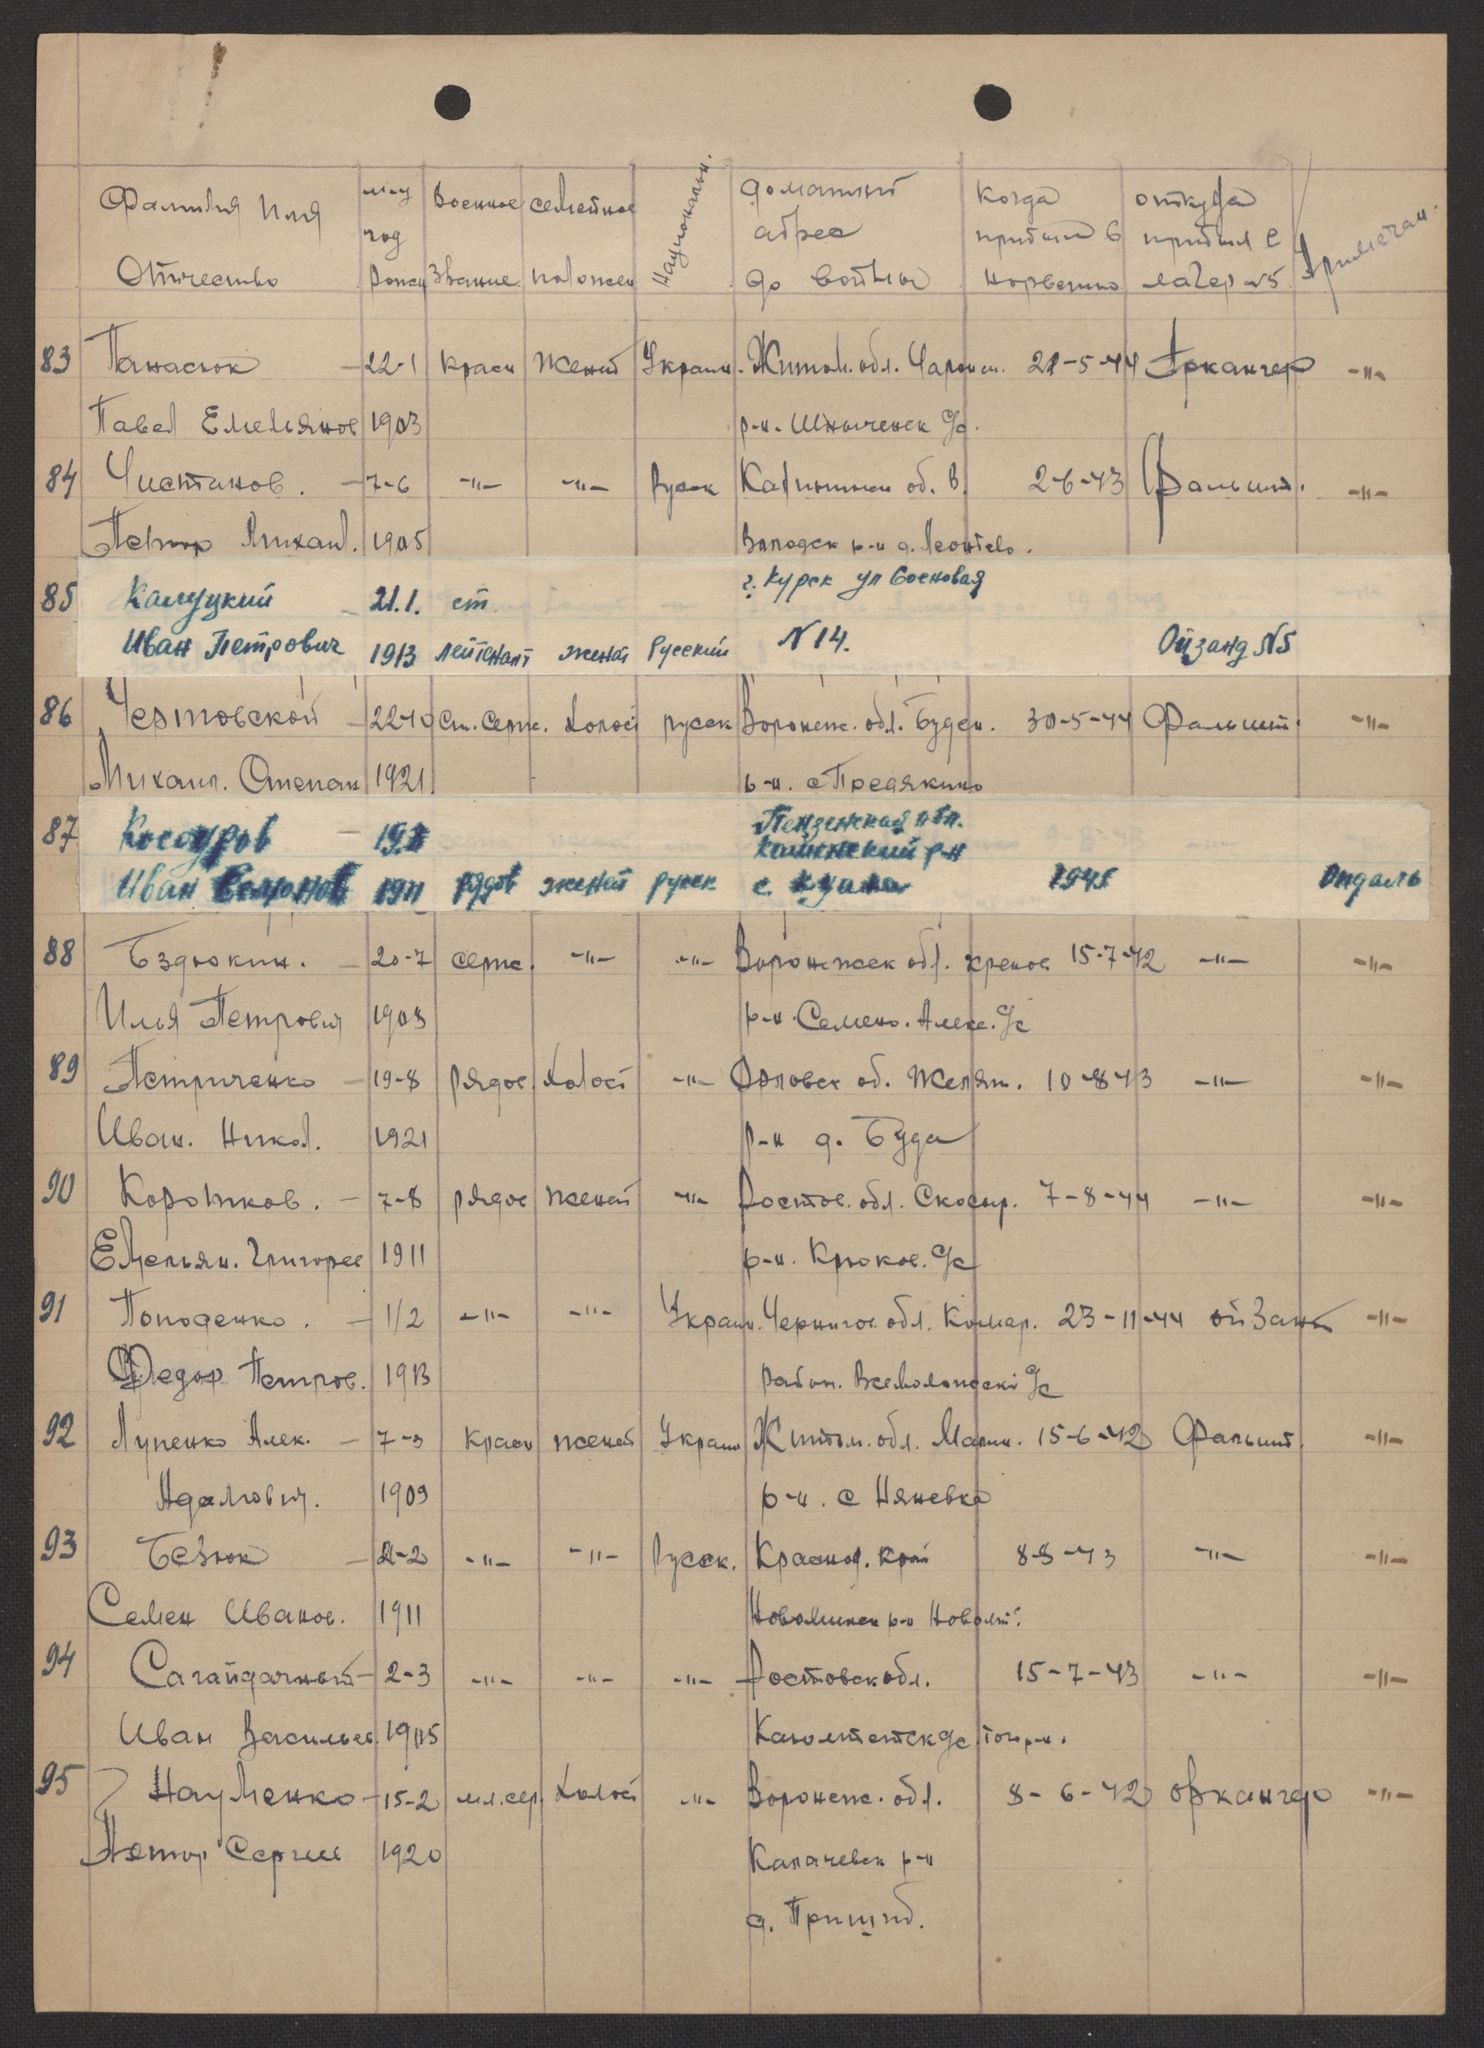 Фамилия Имя Отчество м-ц год рожд Военное звание семейное положен Национальн. домашний адрес до войны когда прибыл в норвегию откуда прибыл в лагер №5 Примечан.
83 Панасюк - 22-1 красн женат Украин. Житом. обл. 21-5-44 Аркангер -"-
Павел Емельянов 1903 р-н. с/с.
84 Чистанов. - 7-6 -"- -"- Русск Калинин об. В. 2-6-43 Фальшт. -"-
Петор Михаил. 1905 р-н д. Леонтево.
85 Калуцкий - 21.1. ст. г. Курск ул Сосновая
Иван Петрович 1913 лейтенант женат Русский N 14. Ойзанд N5
86 Чертовской - 22-10 Ст. серж. холост русск Воронеж. обл. Буден. 30-5-44 Фальшт. -"-
Михаил. Степан 1921 р-н. с
87 Косоуров - Пензенская обл.
р-н
Иван 1911 рядов женат русск с. 1945 Опдаль
88 Бздюкин. - 20-7 серж. -"- -"- Воронежск обл. хренов 15-7-42 -"- -"-
Илья Петрович 1903 р-н. Семено. Алекс. с/с
89 Петриченко - 19-8 рядов холост -"- Орловск об. Желян. 10-8-43 -"- -"-
Иван. Никол. 1921 р-н д. Буда
90 Коротков. - 7-8 рядов женат -"- Ростов. обл. Скосыр. 7-8-44 -"- -"-
Емельян. Григорев 1911 р-н. Крюков. с/с
91 Поподенко. - 1/2 -"- -"- Украин. Чернигов. обл. Комар. 23-11-44 ойзант -"-
Федор Петров. 1913 район. с/с
92 Лупенко Алек. - 7-3 красн женат Украин Житом. обл. Малин. 15-6-42 Фальшт. -"-
Адамович. 1909 р-н. с Няневка
93 Безюк - 2-2 -"- -"- Русск. Краснод. край 8-8-43 -"- -"-
Семен Иванов. 1911 Новоминск р-н
94 Сагайдачный - 2-3 -"- -"- -"- Ростовск обл. 15-7-43 -"- -"-
Иван Васильев. 1905 с/с
95 Науменко - 15-2 мл. сер. холост -"- Воронеж. обл. 8-6-42 Оркангер -"-
Петор Сергее 1920 Калачевск р-н
д. Пришиб.